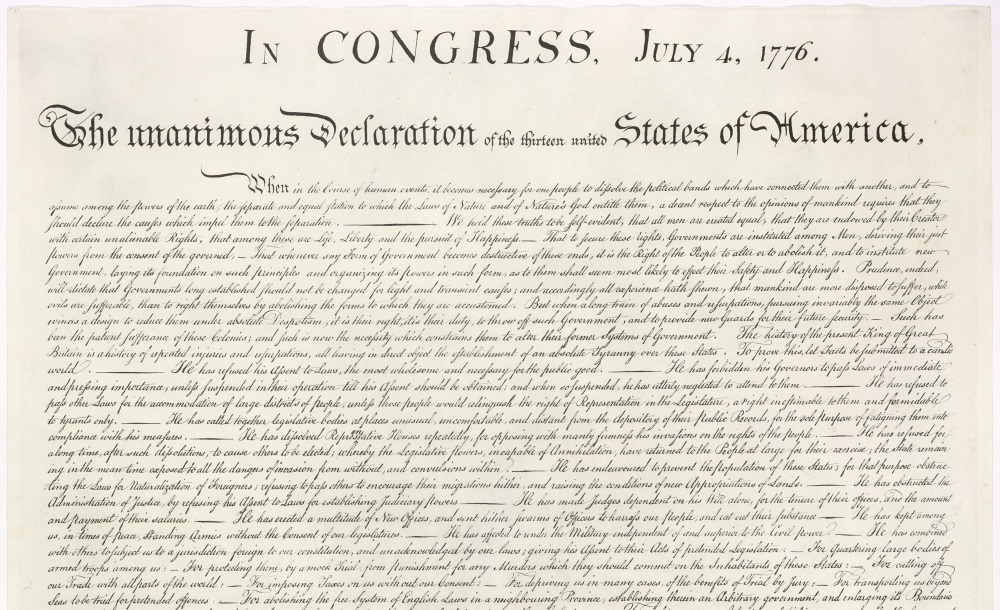 IN CONGRESS, JULY 4, 1776.
The unanimous Declaration of the thirteen united States of America,
When in the Course of human events, it becomes necessary for one people to dissolve the political bands which have connected them with another, and to
assume among the powers of the earth, the separate and equal station to which the Laws of Nature and of Nature's God entitle them, a decent respect to the opinions of mankind requires that they
should declare the causes which impel them to the separation. ——— We hold these truths to be self-evident, that all men are created equal, that they are endowed by their Creator
with certain unalienable Rights, that among these are Life, Liberty and the pursuit of Happiness.— That to secure these rights, Governments are instituted among Men, deriving their just
powers from the consent of the governed, — That whenever any Form of Government becomes destructive of these ends, it is the Right of the People to alter or to abolish it, and to institute new
Government, laying its foundation on such principles and organizing its powers in such form, as to them shall seem most likely to effect their Safety and Happiness. Prudence, indeed,
will dictate that Governments long established should not be changed for light and transient causes; and accordingly all experience hath shewn, that mankind are more disposed to suffer, while
evils are sufferable, than to right themselves by abolishing the forms to which they are accustomed. But when a long train of abuses and usurpations, pursuing invariably the same Object
evinces a design to reduce them under absolute Despotism, it is their right, it is their duty, to throw off such Government, and to provide new Guards for their future security.— Such has
been the patient sufferance of these Colonies; and such is now the necessity which constrains them to alter their former Systems of Government. The history of the present King of Great
Britain is a history of repeated injuries and usurpations, all having in direct object the establishment of an absolute Tyranny over these States. To prove this, let Facts be submitted to a candid
world. ——— He has refused his Assent to Laws, the most wholesome and necessary for the public good. ——— He has forbidden his Governors to pass Laws of immediate
and pressing importance, unless suspended in their operation till his Assent should be obtained; and when so suspended, he has utterly neglected to attend to them. ——— He has refused to
pass other Laws for the accommodation of large districts of people, unless those people would relinquish the right of Representation in the Legislature, a right inestimable to them and formidable
to tyrants only. ——— He has called together legislative bodies at places unusual, uncomfortable, and distant from the depository of their Public Records, for the sole purpose of fatiguing them into
compliance with his measures. ——— He has dissolved Representative Houses repeatedly, for opposing with manly firmness his invasions on the rights of the people. ——— He has refused for
a long time, after such dissolutions, to cause others to be elected; whereby the Legislative powers, incapable of Annihilation, have returned to the People at large for their exercise; the State remain
ing in the mean time exposed to all the dangers of invasion from without, and convulsions within. ——— He has endeavoured to prevent the population of these States; for that purpose obstruc
ting the Laws for Naturalization of Foreigners; refusing to pass others to encourage their migrations hither, and raising the conditions of new Appropriations of Lands. ——— He has obstructed the
Administration of Justice, by refusing his Assent to Laws for establishing Judiciary powers. ——— He has made Judges dependent on his Will alone, for the tenure of their offices, and the amount
and payment of their salaries. ——— He has erected a multitude of New Offices, and sent hither swarms of Officers to harrass our people, and eat out their substance. ——— He has kept among
us, in times of peace, Standing Armies without the Consent of our legislatures. ——— He has affected to render the Military independent of and superior to the Civil power. ——— He has combined
with others to subject us to a jurisdiction foreign to our constitution, and unacknowledged by our laws; giving his Assent to their Acts of pretended Legislation: — For Quartering large bodies of
armed troops among us: — For protecting them, by a mock Trial, from punishment for any Murders which they should commit on the Inhabitants of these States: — For cutting off
our Trade with all parts of the world: — For imposing Taxes on us without our Consent: — For depriving us in many cases, of the benefits of Trial by Jury: — For transporting us beyond
Seas to be tried for pretended offences — For abolishing the free System of English Laws in a neighbouring Province, establishing therein an Arbitrary government, and enlarging its Boundaries